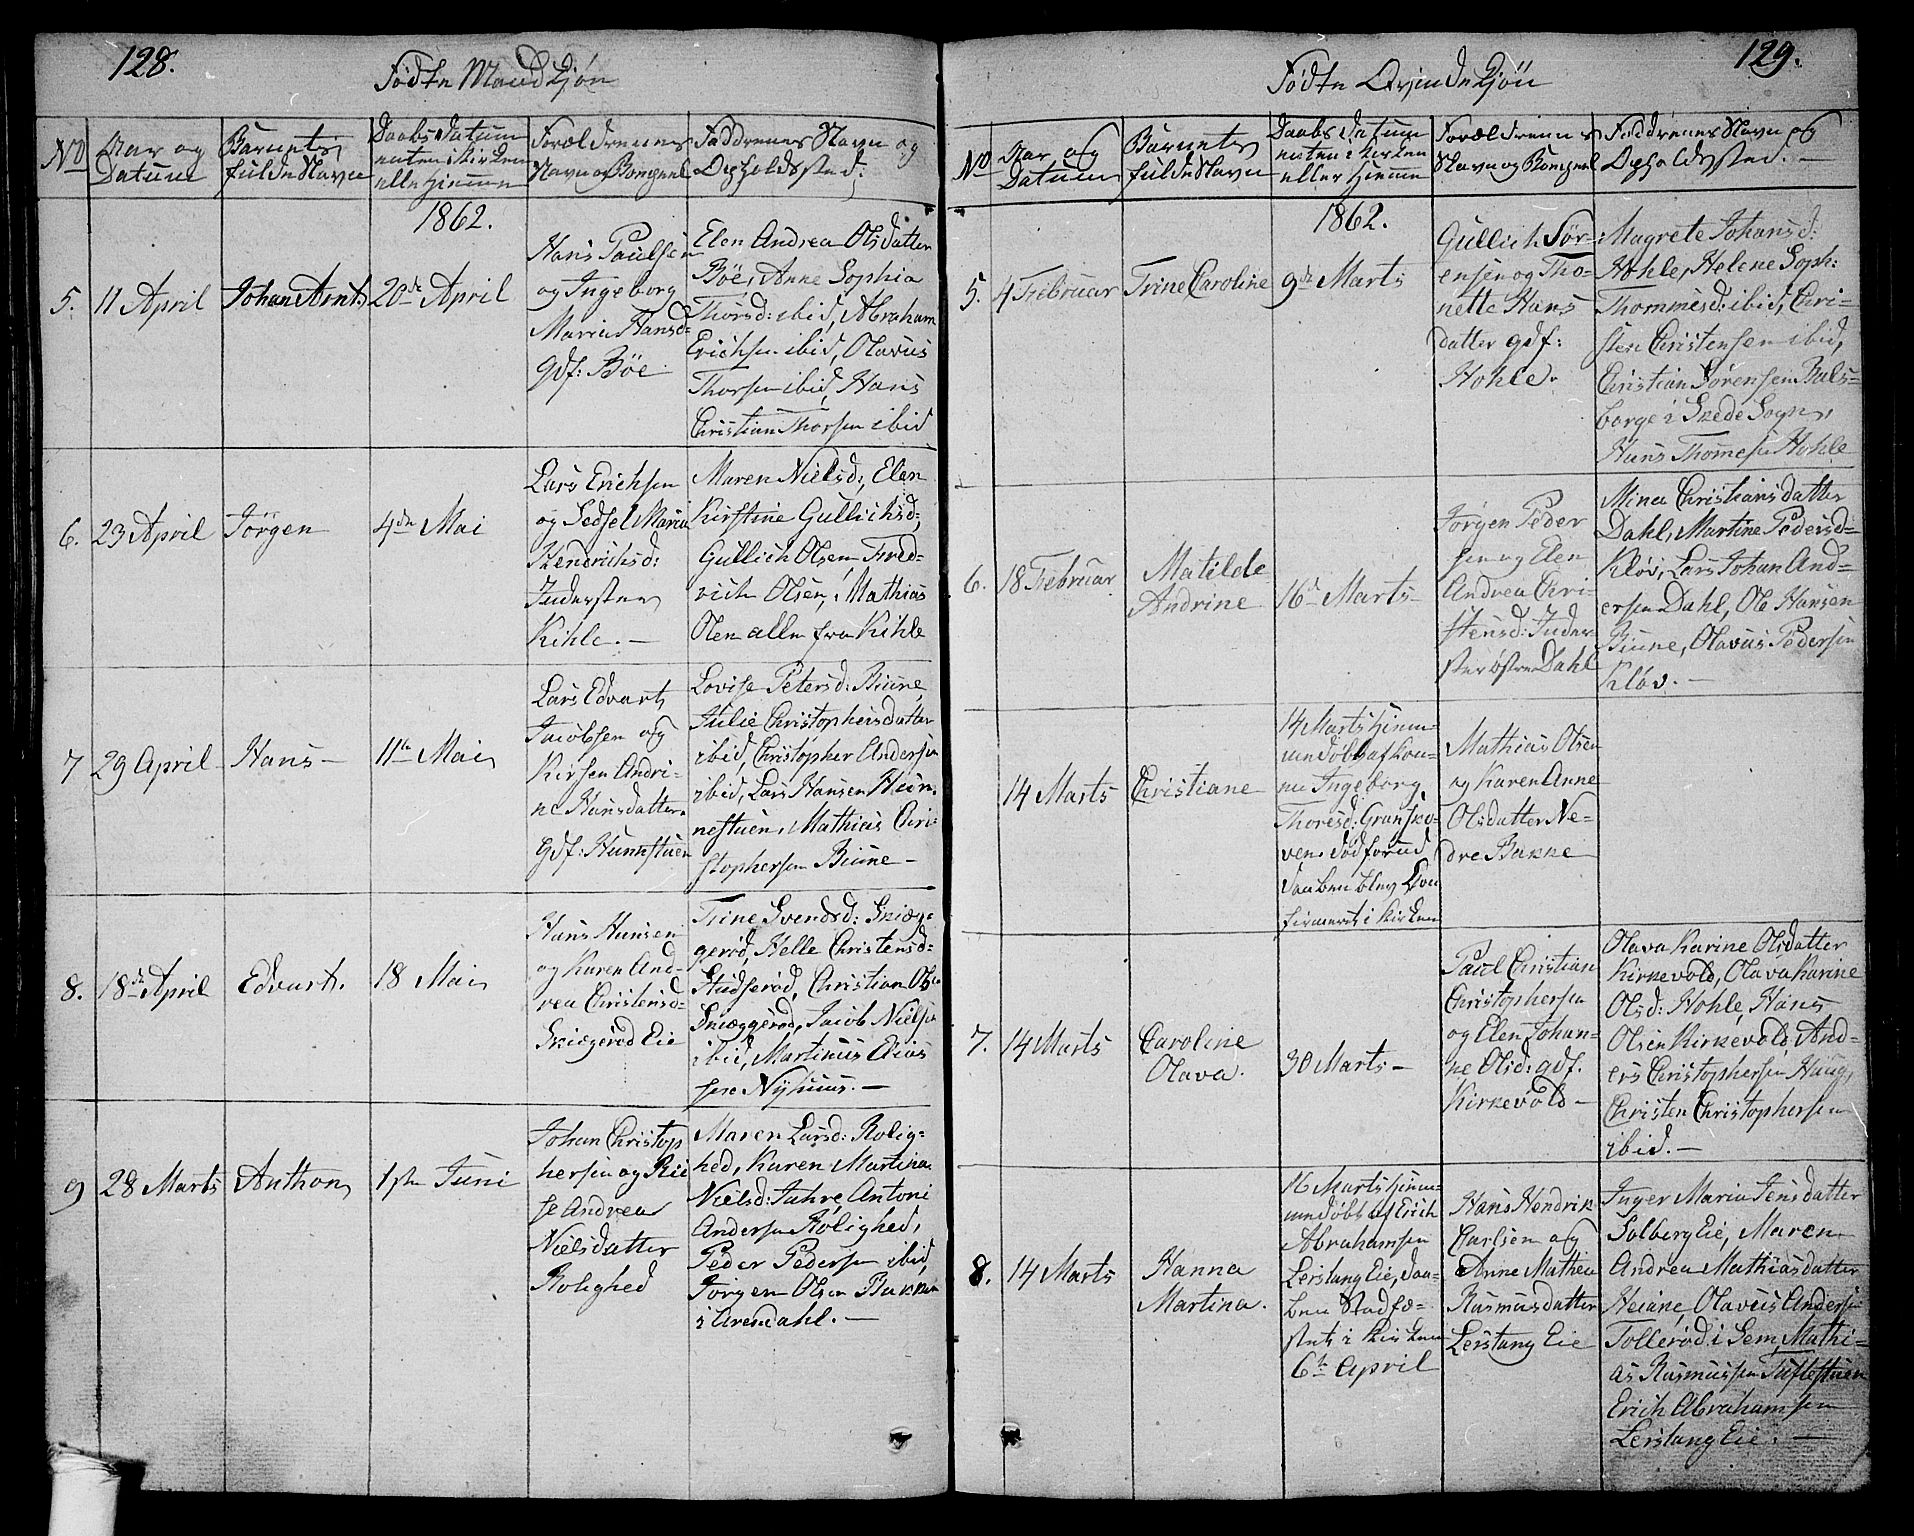 128.
Fødte Mandkjøn
No
Aar og
Datum
Barnets
fulde Navn
Daabs Datum
enten i Kirken
eller Hjemme
Forældrenes
Navn og Bompæl
Faddrenes Navn og
Opholdsted:
1862.
5.
11 April
Johan Arnts
20de April
Hans Paulsen
og Ingeborg
Maria Hansd:
gdf: Böe
Elen Andrea Olsdatter
Böe, Anne Sophia
Thorsd: ibid, Abraham
Erichsen ibid, Olavus
Thorsen ibid, Hans
Christian Thorsen ibid
6.
23 April
Jörgen
4de Mai
Lars Erichsen
og Sedsel Maria
Hendrichsd:
Inderster
Kihle. —
Maren Nielsd:, Elen
Kirstine Gullichsd:,
Gullich Olsen, Fred-
rich Olsen, Mathias
Olsen alle fra Kihle
7
29 April
Hans —
11te Mai
Lars Edvart
Jacobsen og
Kirsten Andri-
ne Hansdatter
gdf: Hunnstuen
Lovise Petersd: Biune
Julie Christophersdatter
ibid, Christopher Andersen
ibid, Lars Hansen Hein-
nestuen, Mathias Chri-
stophersen Biune —
8.
18de April
Edvart.
18 Mai
Hans Hansen
og Karen And-
rea Christensd:
Skiægerød Eie
Trine Svendsd: Skiæg-
gerød, Helle Christensd:
Studserød, Christian Olsen
Skiæggerød, Jacob Nielsen
ibid, Martinus Elias
sen Nyhuus. —
9
28 Marts
Anthon
1ste Juni
Johan Christop
hersen og Elli
se Andrea
Nielsdatter
Rolighed
Maren Larsd: Rolig-
hed, Karen Martina
Nielsd: Jahre, Antoni
Andersen Rolighed,
Peder Pedersen ibid,
Jörgen Olsen Bakken
i Arendahl. —
129.
Fødte Qvindekjön
No
Aar og
Datum
Barnets
fulde Navn
Daabs Datum
enten i Kirken
eller Hjemme
Forældrenes
Navn og Bompæl
Faddrenes Navn og
Opholdsted. —
1862.
5.
4 Februar
Trine Caroline
9de Marts
Gullich Sør-
ensen og Tho-
nette Hans
datter gdf:
Hohle.
Magrete Johansd:
Hohle, Helene Soph:
Thommesd: ibid, Chri-
sten Christensen ibid,
Christian Sørensen Bals-
berge i Skede Sogn,
Hans Thomesen Hohle
6.
18 Februar
Matilde
Andrine
16de Marts —
Jørgen Peder
sen og Elen
Andrea Chri-
stensd: Inder-
ster østre Dahl
Mina Christiansdatter
Dahl, Martine Pedersd:
Klöv, Lars Johan And-
ersen Dahl, Ole Hansen
Biune, Olavus Pedersen
Klöv. —
14 Marts
Christiane
14 Marts hjem-
medøbt af Kon-
ne Ingeborg
Thoresd: Gransko-
ven. død forend
Daaben blev Kon
firmeret i Kirken
Mathias Olsen
og Karen Anne
Olsdatter Ne-
dre Bakke
7.
14 Marts
Caroline
Olava.
30 Marts —
Paul Christian
Christophersen
og Elen Johan-
ne Olsd: gdf.
Kirkevold —
Olava Karine Olsdatter
Kirkevold, Olava Karine
Olsd: Hohle, Hans
Olsen Kirkevold, And-
ers Christophersen Haug,
Christen Christophersen
ibid. —
8.
14 Marts
Hanna
Martina.
16 Marts hjem-
medøbt af Erich
Abrahamsen
Leistang Eie, Daa-
ben Stadfæ-
stet i Kirken
6te April
Hans Hendrik
Carlsen og
Anne Mathea
Rasmusdatter
Leistang Eie
Inger Maria Jensdatter
Solberg Eie, Maren
Andrea Mathiasdatter
Heiane, Olavus Andersen
Tollerød i Sem, Mathi-
as Rasmussen Tuflestuen
Erich Abrahamsen
Leistang Eie. —